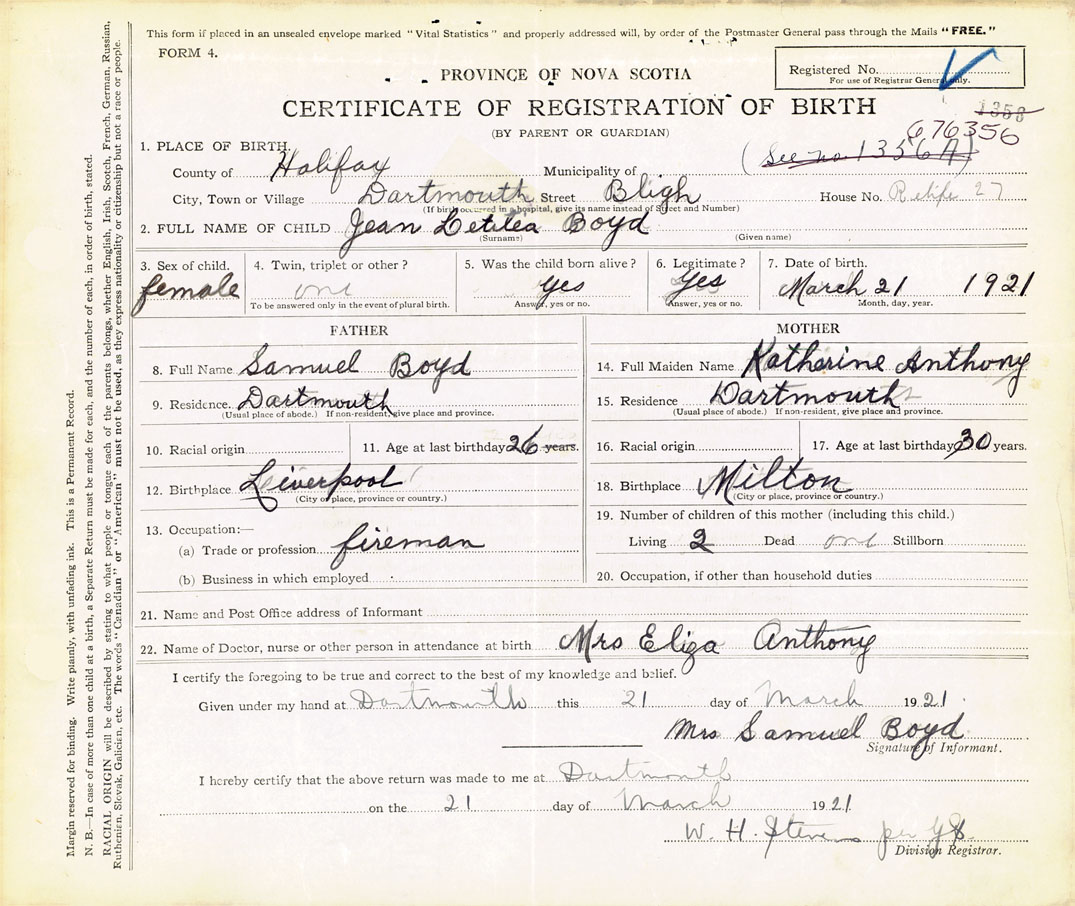 This form if placed in an unsealed envelope marked "Vital Statistics" and properly addressed will, by order of the Postmaster General pass through the Mails "FREE."
FORM 4.
PROVINCE OF NOVA SCOTIA
Registered No.
For use of Registrar General only.
CERTIFICATE OF REGISTRATION OF BIRTH
1358
(BY PARENT OR GUARDIAN)
676356
(See no 1356A)
1. PLACE OF BIRTH.
County of Halifax Municipality of
City, Town or Village Dartmouth Street Bligh House No. 27
(If birth occurred in a hospital, give its name instead of Street and Number)
2. FULL NAME OF CHILD Jean Letitea Boyd
(Surname) (Given name)
3. Sex of child. 4. Twin, triplet or other? 5. Was the child born alive? 6. Legitimate? 7. Date of birth.
female one yes Yes March 21 1921
To be answered only in the event of plural birth. Answer, yes or no. Answer, yes or no. Month, day, year.
FATHER MOTHER
8. Full Name Samuel Boyd 14. Full Maiden Name Katherine Anthony
9. Residence. Dartmouth 15. Residence Dartmouth
(Usual place of abode.) If non-resident, give place and province. (Usual place of abode.) If non-resident, give place and province.
10. Racial origin 11. Age at last birthday 26 years. 16. Racial origin 17. Age at last birthday 30 years.
12. Birthplace Liverpool 18. Birthplace Milton
(City or place, province or country.) (City or place, province or country.)
13. Occupation:— 19. Number of children of this mother (including this child.)
(a) Trade or profession fireman Living 2 Dead one Stillborn
(b) Business in which employed 20. Occupation, if other than household duties
21. Name and Post Office address of Informant
22. Name of Doctor, nurse or other person in attendance at birth Mrs Eliza Anthony
I certify the foregoing to be true and correct to the best of my knowledge and belief.
Given under my hand at Dartmouth this 21 day of March 1921.
Mrs Samuel Boyd
Signature of Informant.
I hereby certify that the above return was made to me at Dartmouth
on the 21 day of March 1921
W. H. Stevens per
Division Registrar.
Margin reserved for binding. Write plainly, with unfading ink. This is a Permanent Record.
N. B.—In case of more than one child at a birth, a Separate Return must be made for each, and the number of each, in order of birth, stated.
RACIAL ORIGIN will be described by stating to what people or tongue each of the parents belongs, whether English, Irish, Scotch, French, German, Russian,
Ruthenian, Slovak, Galician, etc. The words "Canadian" or "American" must not be used, as they express nationality or citizenship but not a race or people.